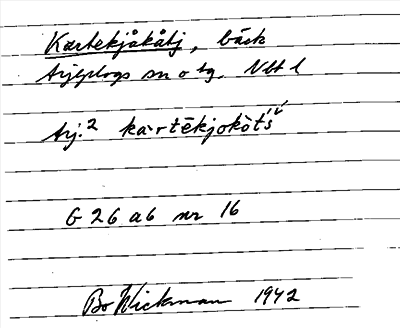 Kartekjåkåtj, bäck
Arjeplogs sn o tg. Vbt l
Arj.² kà·rtēkjokòt́š́
G 26 a 6 nr 16
Bo Wickman 1942